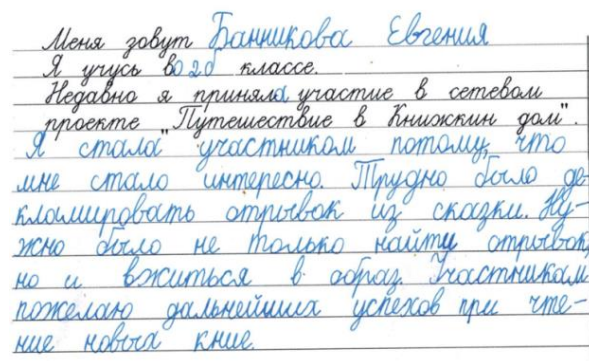 Меня зовут Банникова Евгения
Я учусь во 2б классе.
Недавно я приняла участие в сетевом
проекте "Путешествие в Книжкин дом".
Я стала участником потому, что
мне стало интересно. Трудно было де-
кламировать отрывок из сказки. Ну-
жно было не только найти отрывок,
но и вжиться в образ. Участникам
пожелаю дальнейших успехов при чте-
ние новых книг.